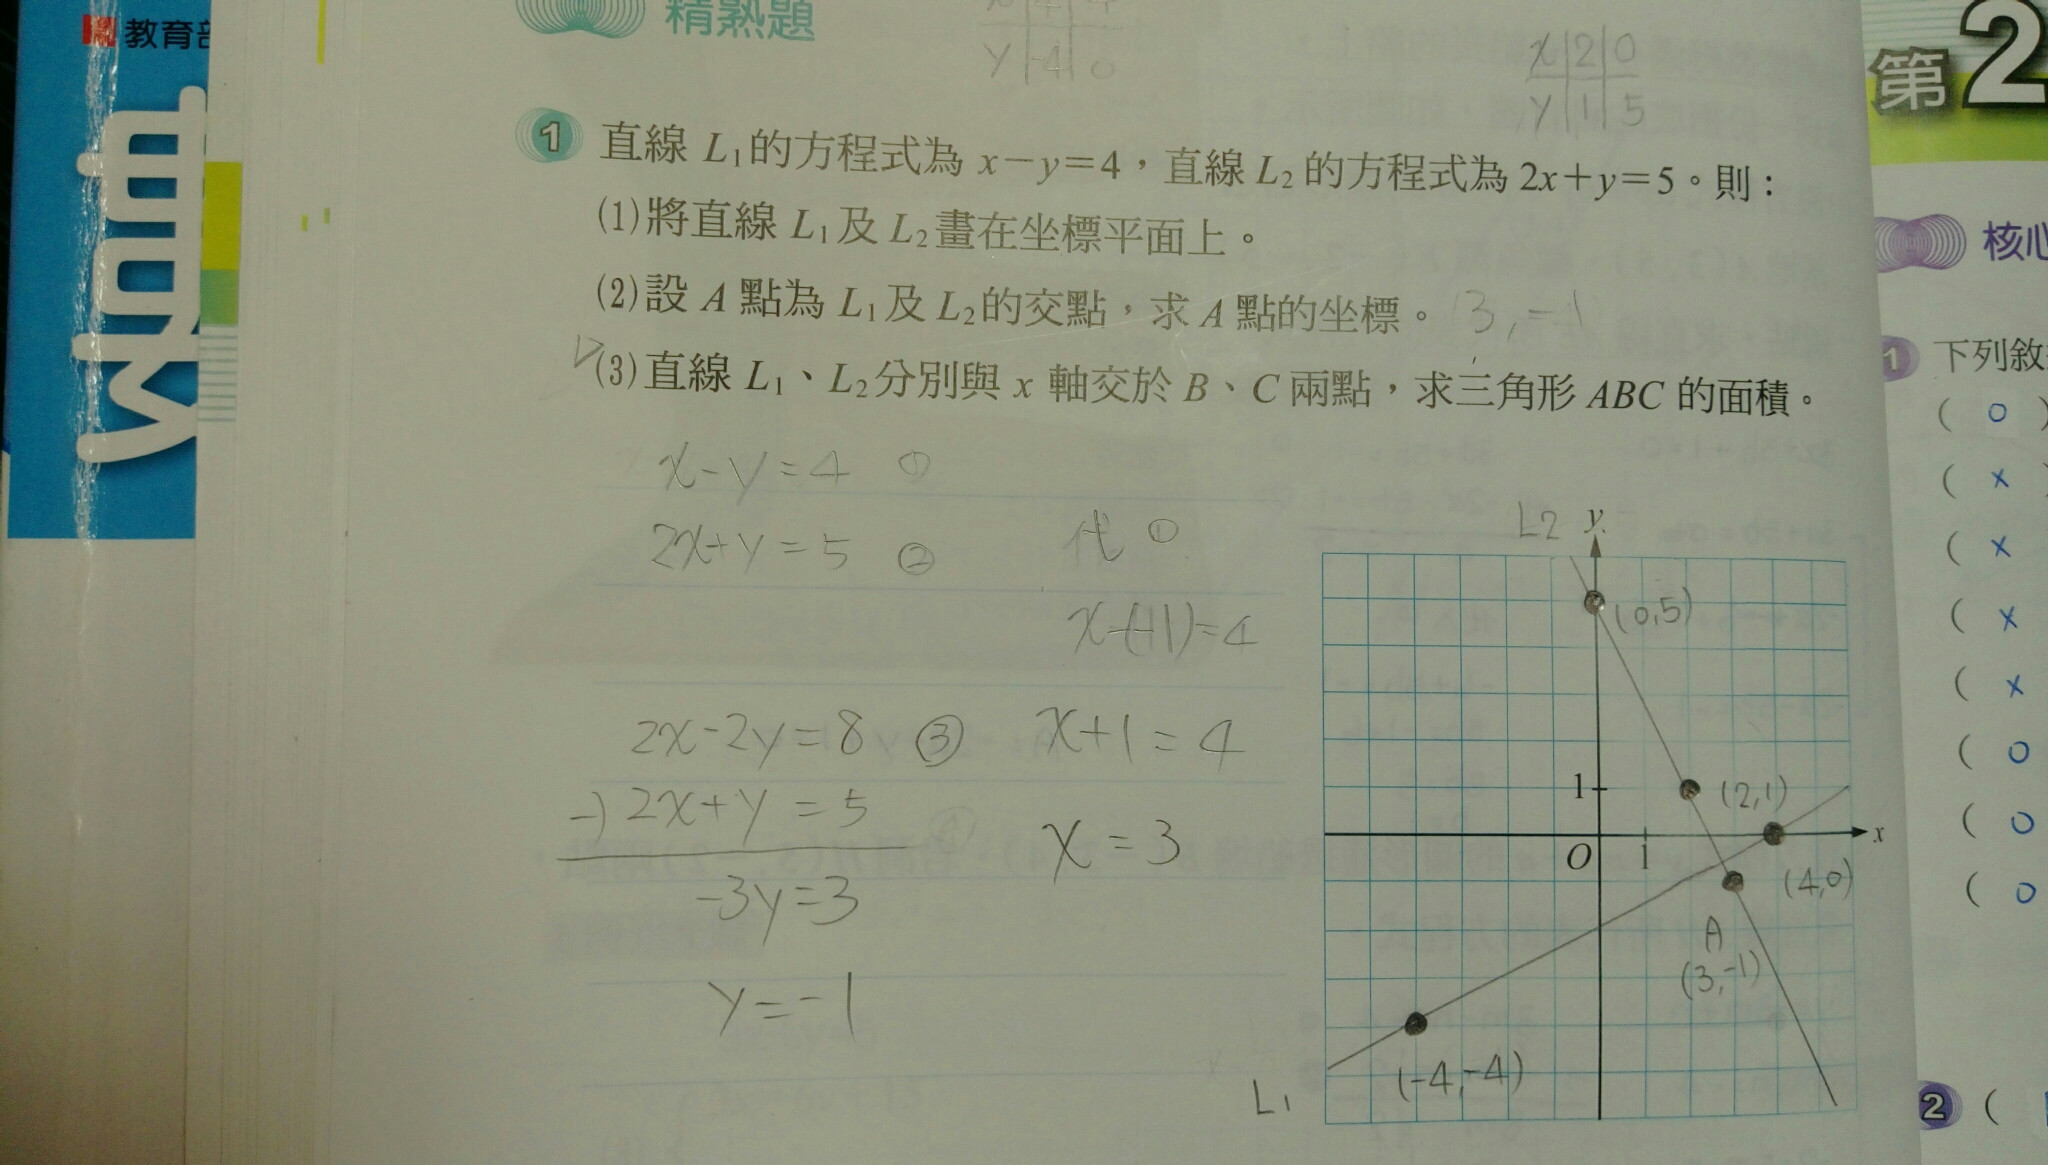 教育
精熟題
Y -4 0
x 2 0
Y 1 5
第2
1 直線 L1的方程式為 x-y=4，直線 L2 的方程式為 2x+y=5。則：
(1)將直線 L1及 L2畫在坐標平面上。
(2)設 A 點為 L1及 L2的交點，求 A 點的坐標。 (3,-1)
(3)直線 L1、L2分別與 x 軸交於 B、C 兩點，求三角形 ABC 的面積。
x-y=4 ①
2x+y=5 ②
2x-2y=8 ③
-) 2x+y=5
-3y=3
y=-1
代①
x-(-1)=4
x+1=4
x=3
L2 y
(0,5)
1 (2,1)
O 1 x
(4,0)
A
(3,-1)
(-4,-4)
L1
核心
1 下列敘
( ○ )
( × )
( ×
( ×
( ×
( ○
( ○
( ○
2 (